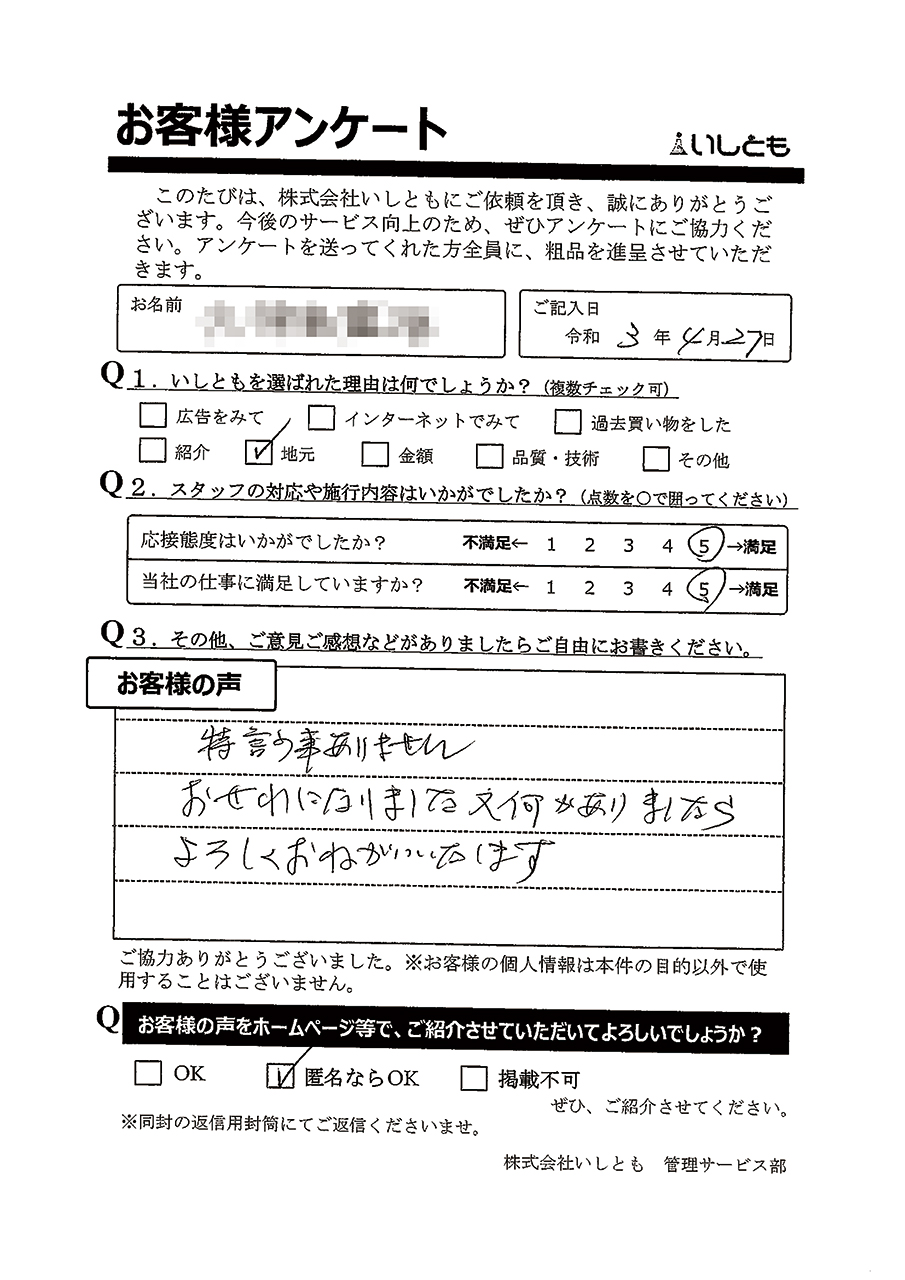 お客様アンケート
いしとも
このたびは、株式会社いしともにご依頼を頂き、誠にありがとうご
ざいます。今後のサービス向上のため、ぜひアンケートにご協力くだ
さい。アンケートを送ってくれた方全員に、粗品を進呈させていただ
きます。
お名前
ご記入日
令和 3 年 4 月 27 日
Q1.いしともを選ばれた理由は何でしょうか?(複数チェック可)
広告をみて インターネットでみて 過去買い物をした
紹介 地元 金額 品質・技術 その他
Q2.スタッフの対応や施行内容はいかがでしたか?(点数を〇で囲ってください)
応接態度はいかがでしたか? 不満足← 1 2 3 4 5 →満足
当社の仕事に満足していますか? 不満足← 1 2 3 4 5 →満足
Q3.その他、ご意見ご感想などがありましたらご自由にお書きください。
お客様の声
特言う事ありません
おせわになりました 又何かありましたら
よろしくおねがいいたします
ご協力ありがとうございました。※お客様の個人情報は本件の目的以外で使
用することはございません。
Q お客様の声をホームページ等で、ご紹介させていただいてよろしいでしょうか?
OK 匿名ならOK 掲載不可
ぜひ、ご紹介させてください。
※同封の返信用封筒にてご返信くださいませ。
株式会社いしとも 管理サービス部